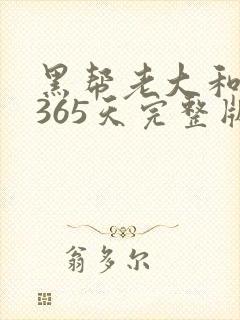 黑帮老大和
365天完整版
翁多尔